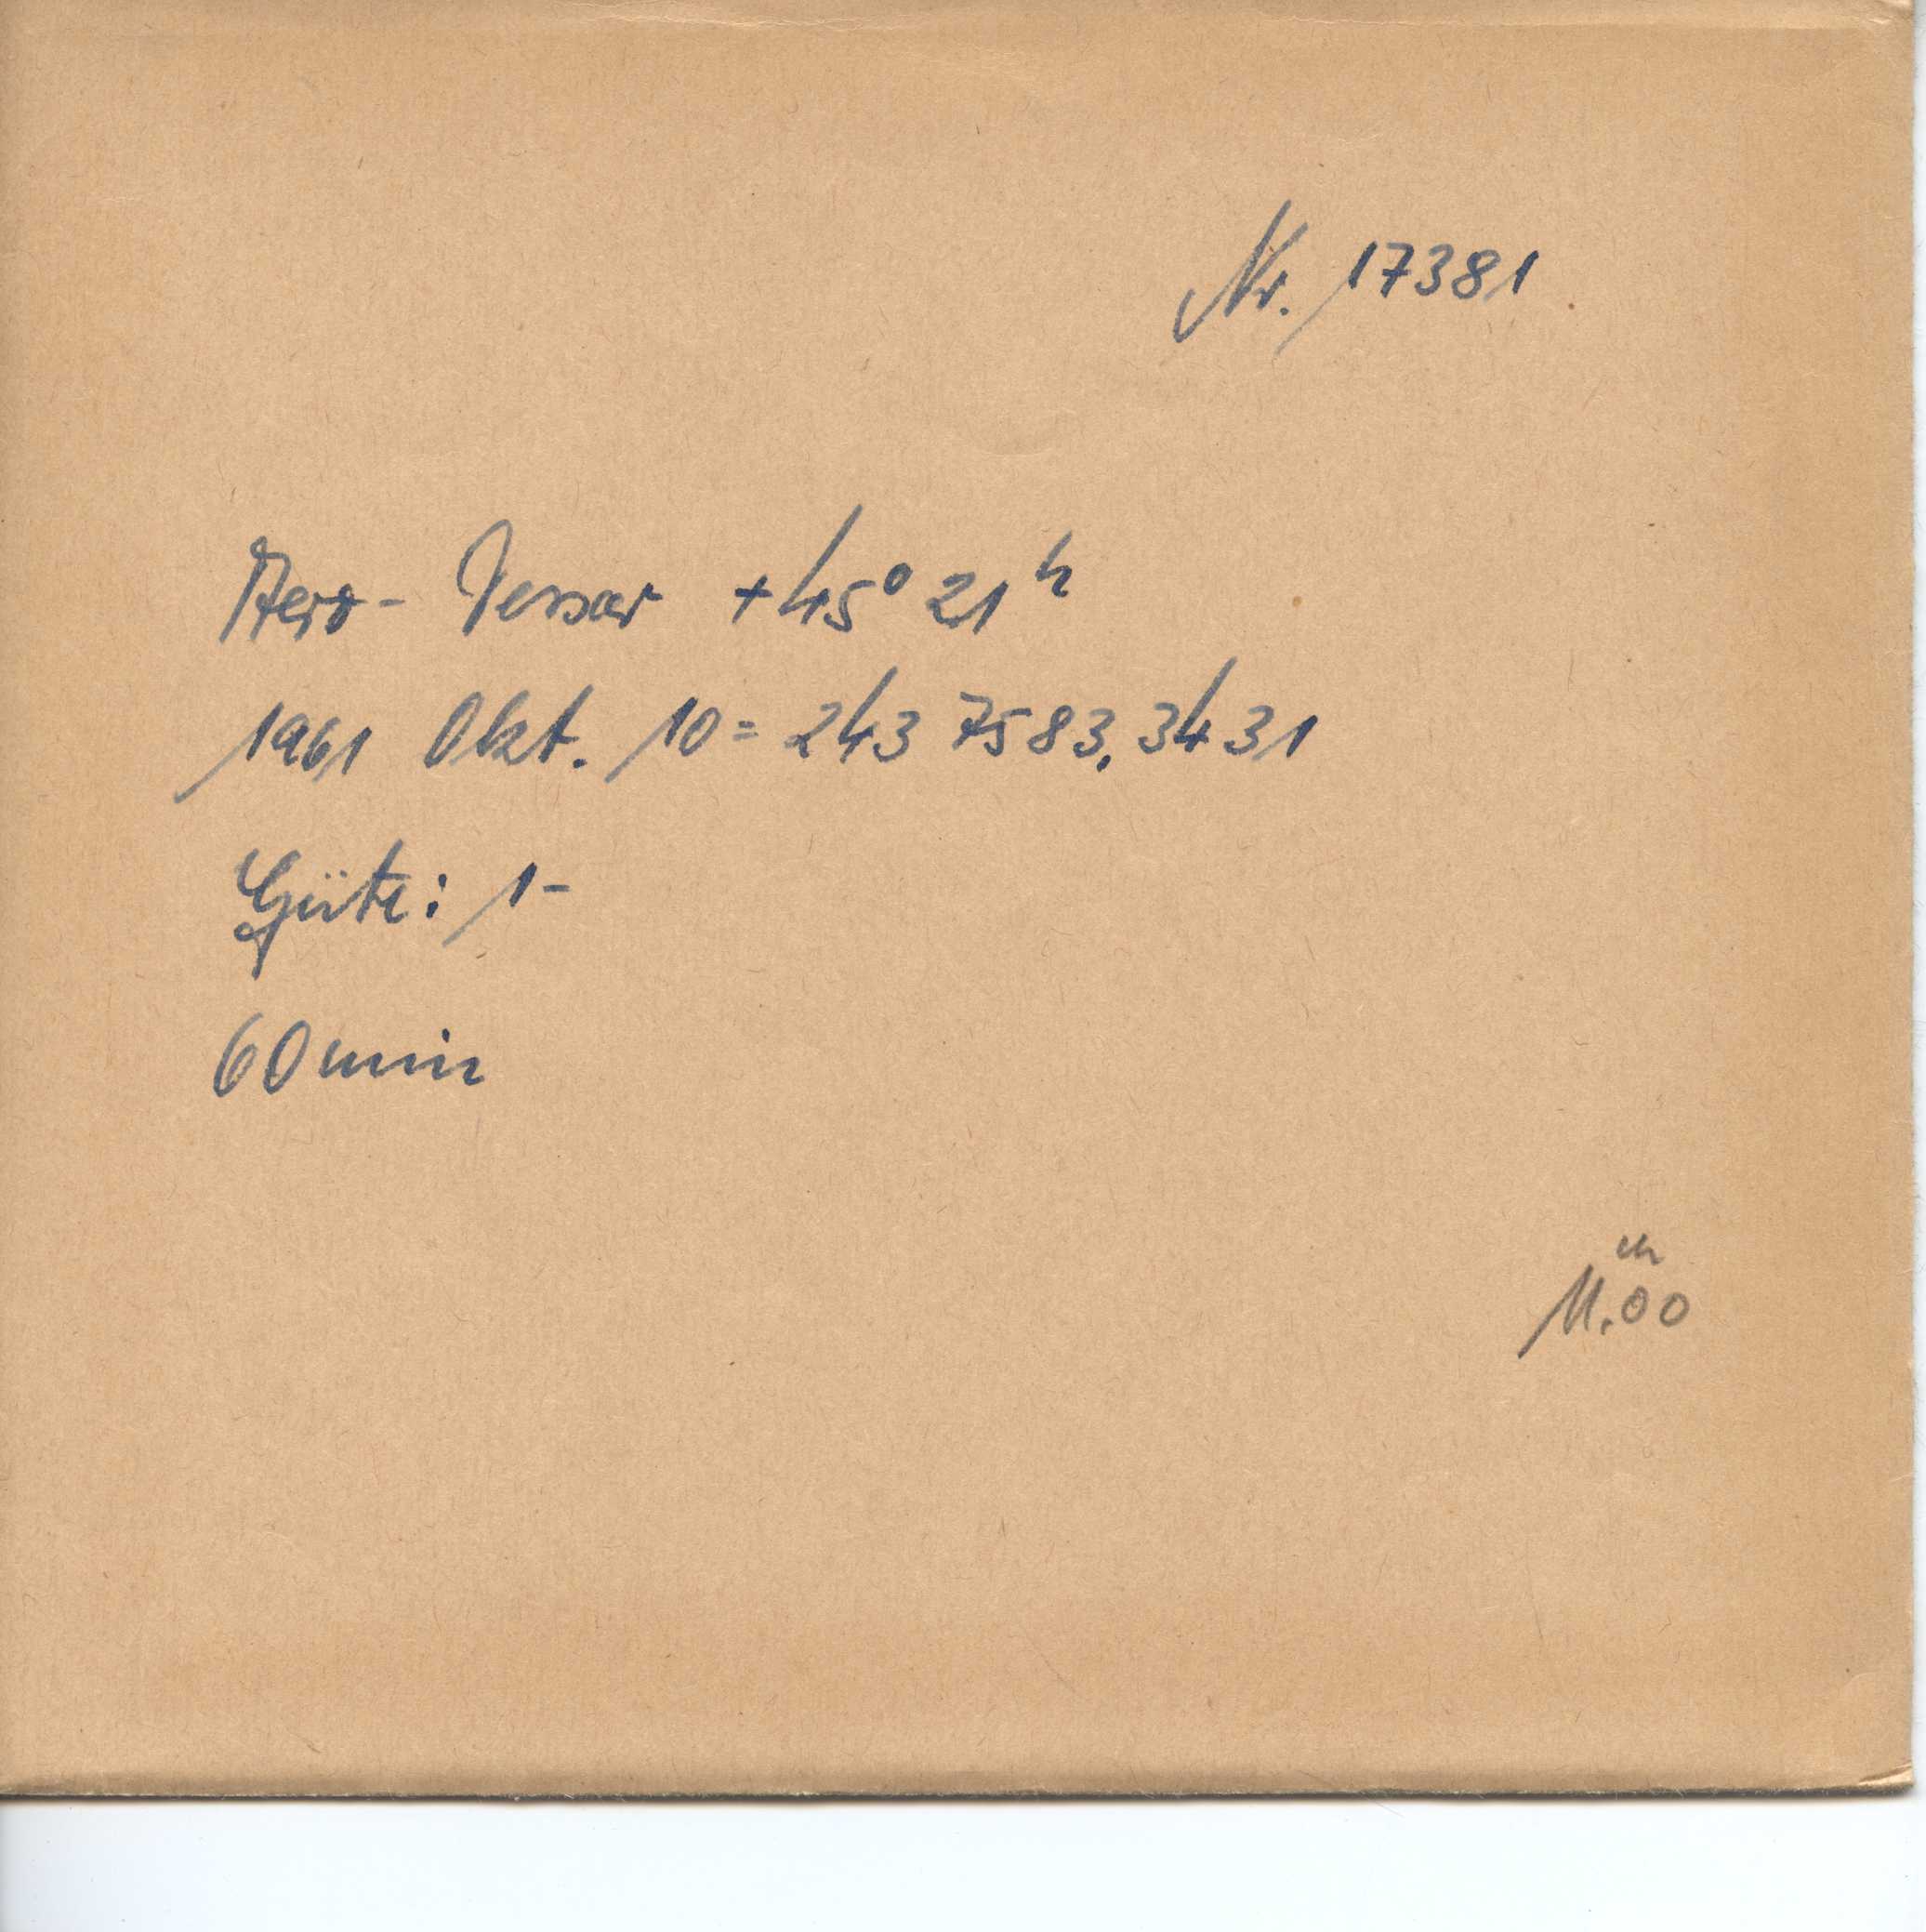 Nr. 17381
Aero-Tessar +45° 21ʰ
1961 Okt. 10 = 243 7583,3431
Güte: 1-
60 min
m
11.00